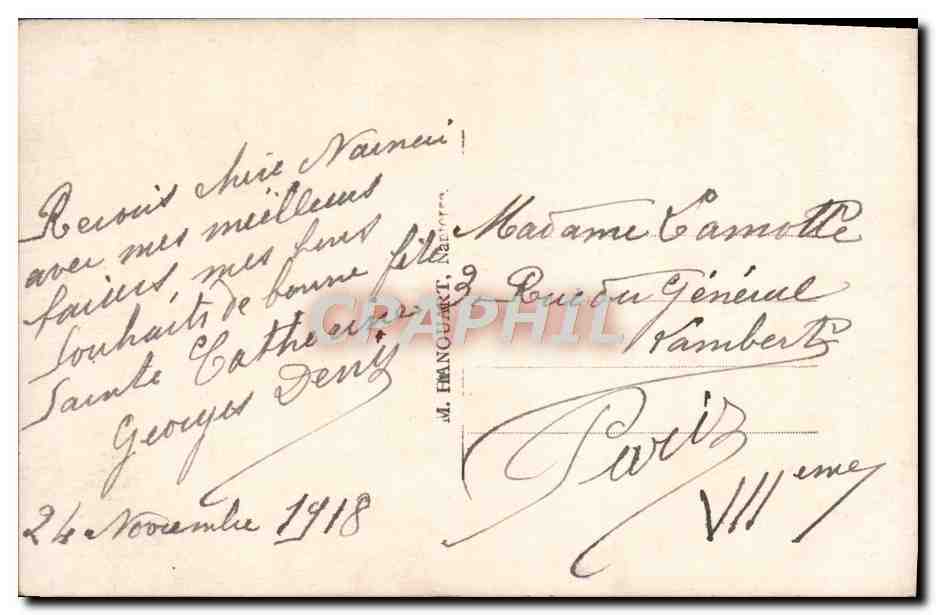 Reçois chère
avec mes meilleurs
baisers, mes bons
souhaits de bonne fête
Sainte Catherine
Georges Denis
24 Novembre 1918
M. HANOUART,
CRAPHIL
Madame Lamotte
3 Rue du Général
Lambert
Paris
VIIeme